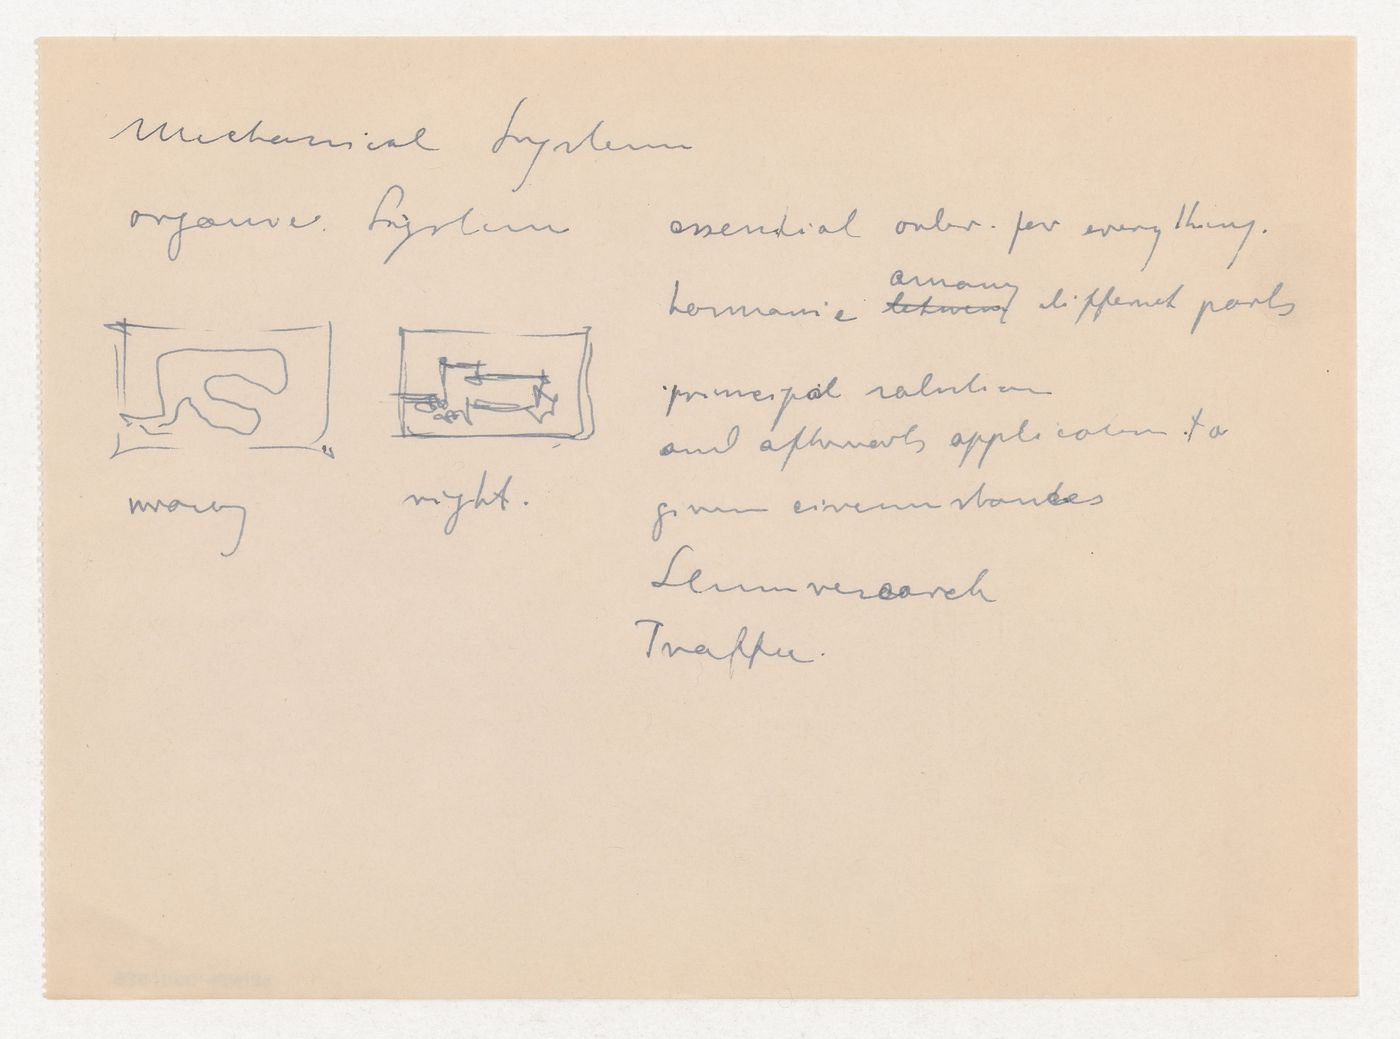 Mechanical System
organic. System
essential order. for everything.
harmonie among different parts
principal solution
and afterwards application to
given circumstances
wrong
right.
Slumresearch
Traffic.